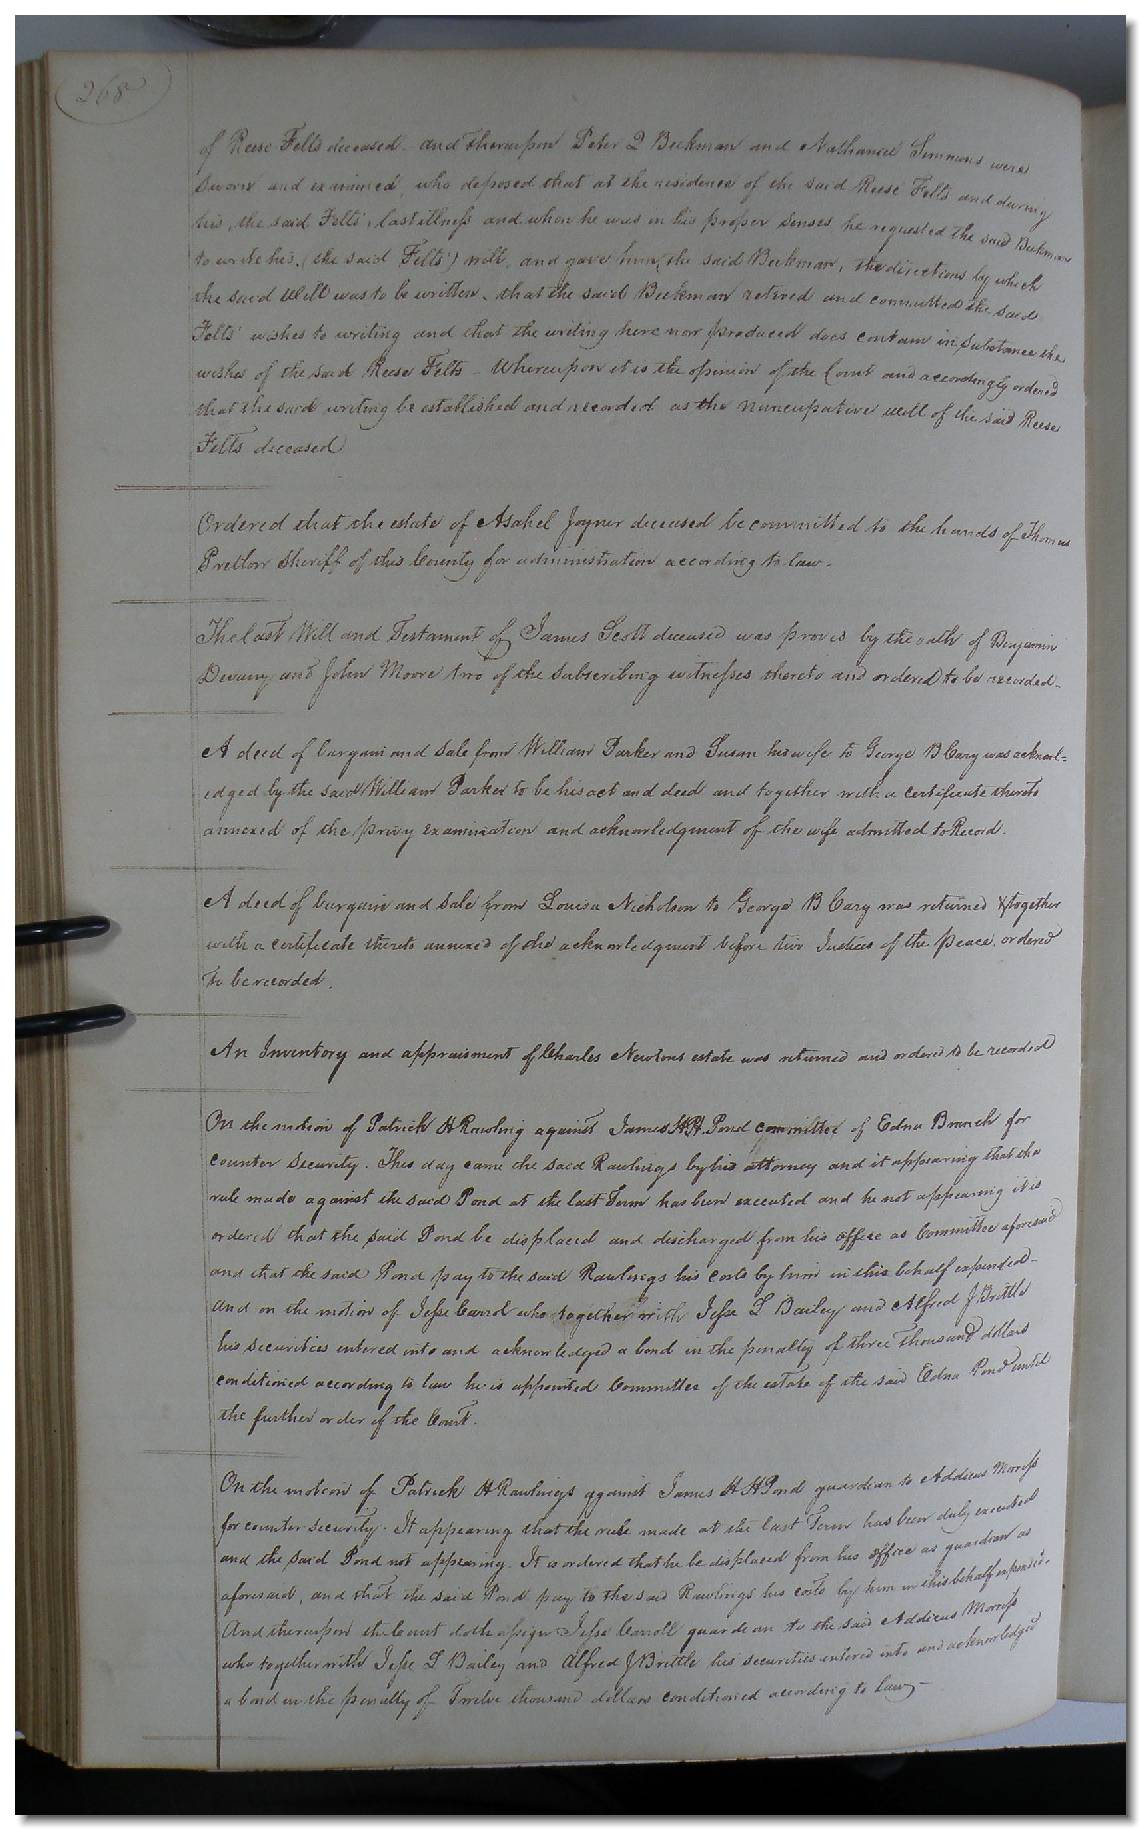 268
of Reese Felts deceased. and thereupon Peter Q Beekman and Nathaniel Simmons were
sworn and examined, who deposed that at the residence of the said Reese Felts and during
his, the said Felts', last illness and when he was in his proper senses he requested the said Beekman
to write his, (the said Felts') will, and gave him, the said Beekman, the directions by which
the said Will was to be written. that the said Beekman retired and committed the said
Felts' wishes to writing and that the writing here now produced does contain in substance the
wishes of the said Reese Felts - Whereupon it is the opinion of the Court and accordingly ordered
that the said writing be established and recorded as the nuncupative will of the said Reese
Felts deceased
Ordered that the estate of Asahel Joyner deceased be committed to the hands of Thomas
Pretlow Sheriff of this County for administration according to law.
The last Will and Testament of James Scott deceased was proved by the oath of Benjamin
and John Moore two of the subscribing witnesses thereto and ordered to be recorded -
A deed of bargain and sale from William Parker and Susan his wife to George B Cary was acknowl=
edged by the said William Parker to be his act and deed and together with a certificate thereto
annexed of the privy examination and acknowledgment of the wife admitted to Record.
A deed of bargain and sale from Louisa Nicholson to George B Cary was returned & together
with a certificate thereto annexed of the acknowledgment before two Justices of the peace, ordered
to be recorded.
An Inventory and appraisment of Charles Newsons estate was returned and ordered to be recorded
On the motion of Patrick H Rawling against James H H Pond committee of Edna Branch for
counter security. This day came the said Rawlings by his attorney and it appearing that the
rule made against the said Pond at the last Term has been executed and he not appearing it is
ordered that the said Pond be displaced and discharged from his office as Committee aforesaid
and that the said Pond pay to the said Rawlings his costs by him in this behalf expended -
And on the motion of Jesse Carrol who together with Jesse L Bailey and Alfred J Brittle
his securities entered into and acknowledged a bond in the penalty of three thousand dollars
conditioned according to law he is appointed Committee of the estate of the said Edna Pond until
the further order of the Court.
On the motion of Patrick H Rawlings against James H H Pond guardian to Addicus Morriss
for counter security. It appearing that the rule made at the last Term has been duly executed
and the said Pond not appearing. It is ordered that he be displaced from his office as guardian as
aforesaid, and that the said Pond pay to the said Rawlings his costs by him in this behalf expended.
And thereupon the Court doth assign Jesse Carroll guardian to the said Addicus Morriss
who together with Jesse L Bailey and Alfred J Brittle his securities entered into and acknowledged
a bond in the penalty of Twelve thousand dollars conditioned according to Law -